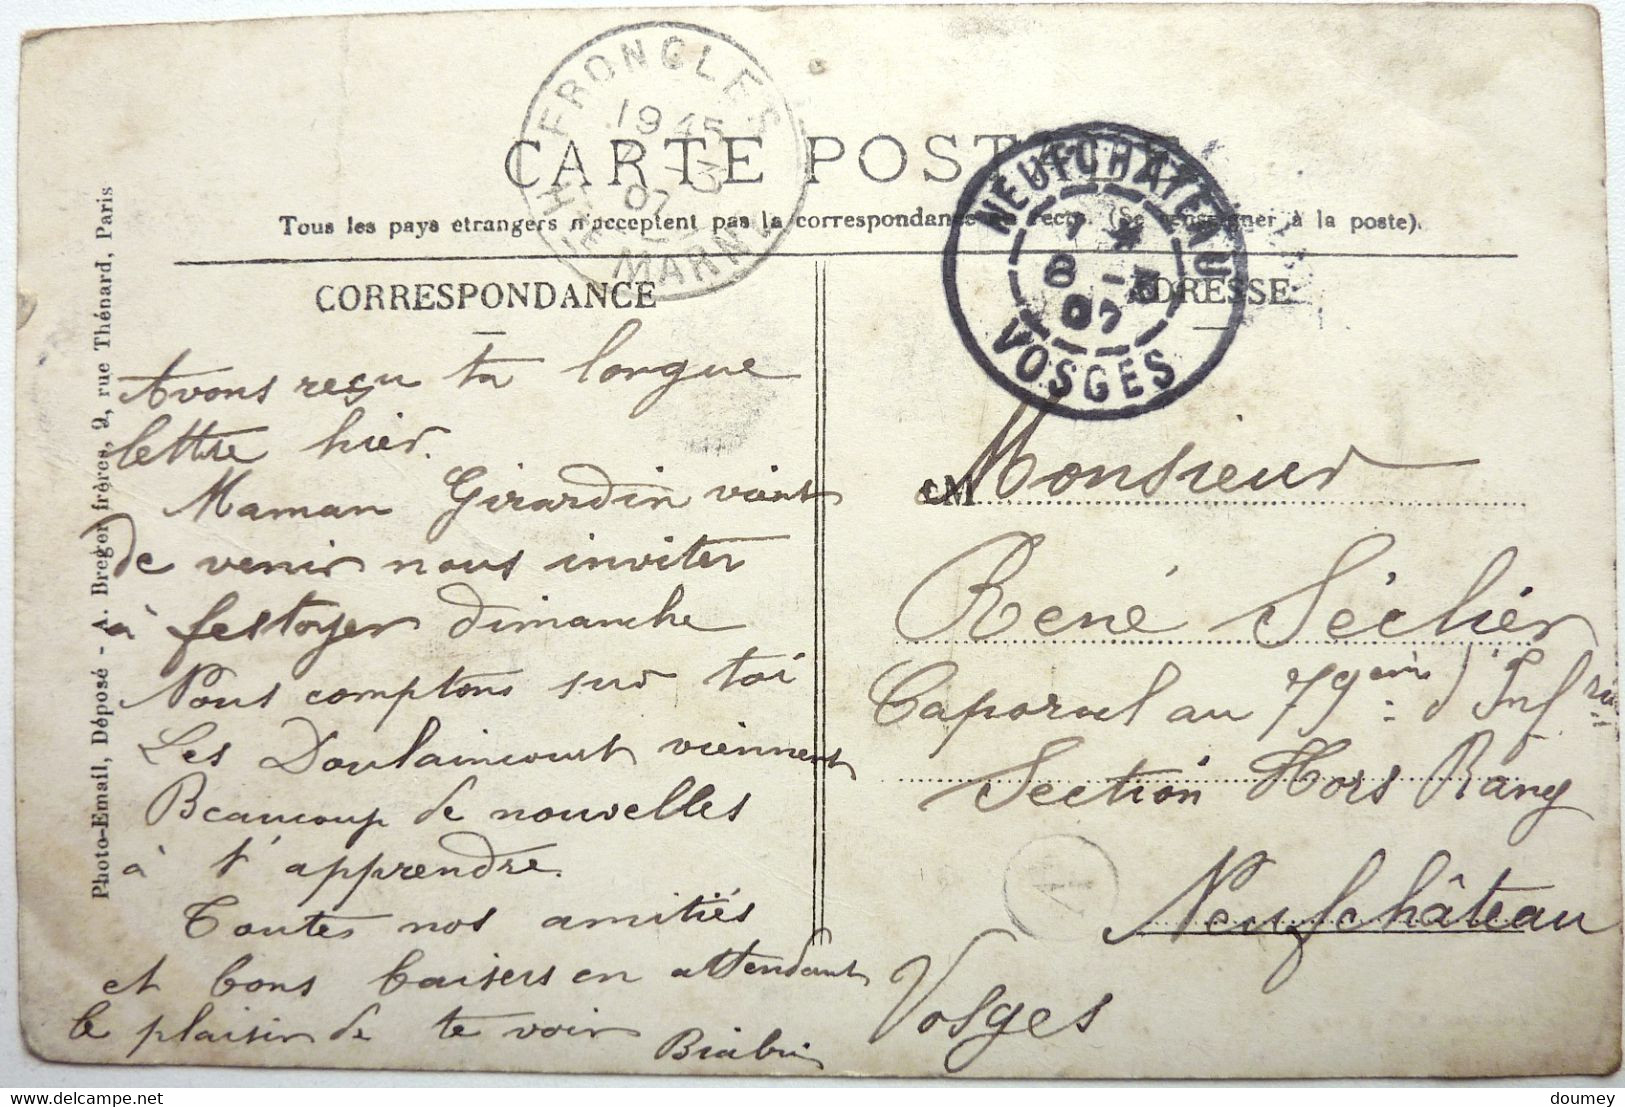 FRONCLES
19 45
7 -3
07
HTE MARNE
NEUFCHATEAU
7 *
8 -3
07
VOSGES
CARTE POSTALE
Tous les pays etrangers n'acceptent pas la correspondance au recto. (Se renseigner à la poste).
CORRESPONDANCE
Avons reçu ta longue
lettre hier.
Maman Girardin vient
de venir nous inviter
à festoyer dimanche
Nous comptons sur toi
Les Doulaincourt viennent
Beaucoup de nouvelles
à t'apprendre.
Toutes nos amitiés
et bons baisers en attendant
le plaisir de te voir
ADRESSE
M
Monsieur
René Séclier
Caporal au 79ème d'Infrie
Section Hors Rang
Neufchâteau
Vosges
Photo-Email, Déposé - A. Breger frères, 9, rue Thénard, Paris
delcampe.net
doumey